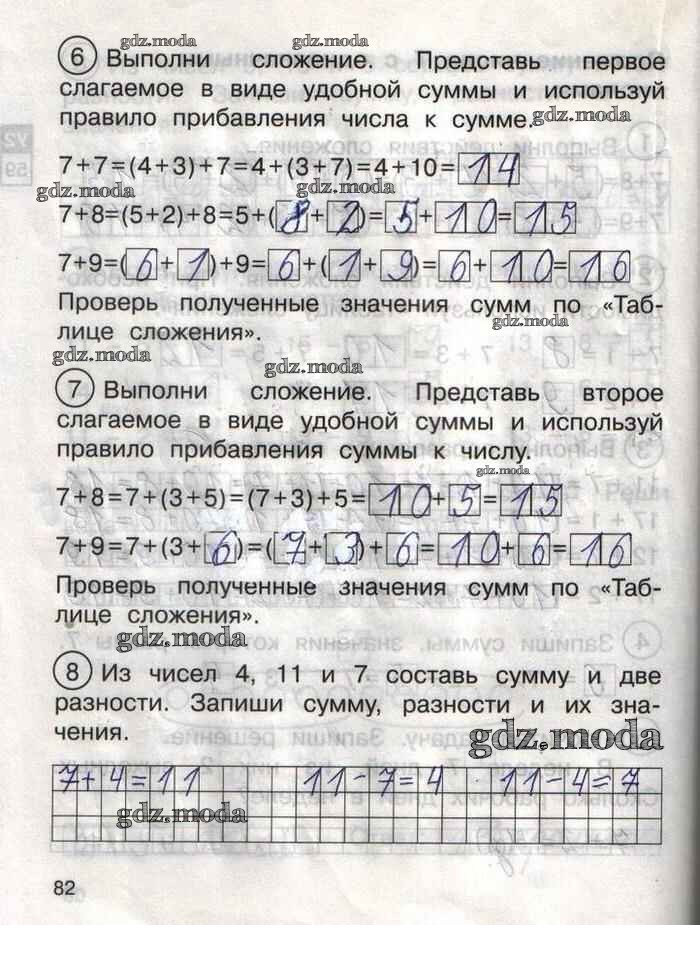 gdz.moda
gdz.moda
6 Выполни сложение. Представь первое
слагаемое в виде удобной суммы и используй
правило прибавления числа к сумме.
gdz.moda
7+7=(4+3)+7=4+(3+7)=4+10=14
gdz.moda
gdz.moda
7+8=(5+2)+8=5+(8+2)=5+10=15
7+9=(6+1)+9=6+(1+9)=6+10=16
Проверь полученные значения сумм по «Таб-
gdz.moda
лице сложения».
gdz.moda
gdz.moda
7 Выполни сложение. Представь второе
слагаемое в виде удобной суммы и используй
правило прибавления суммы к числу.
gdz.moda
7+8=7+(3+5)=(7+3)+5=10+5=15
7+9=7+(3+6)=(7+3)+6=10+6=16
Проверь полученные значения сумм по «Таб-
лице сложения».
gdz.moda
8 Из чисел 4, 11 и 7 составь сумму и две
разности. Запиши сумму, разности и их зна-
чения.
gdz.moda
7+4=11 11-7=4 11-4=7
gdz.moda
82